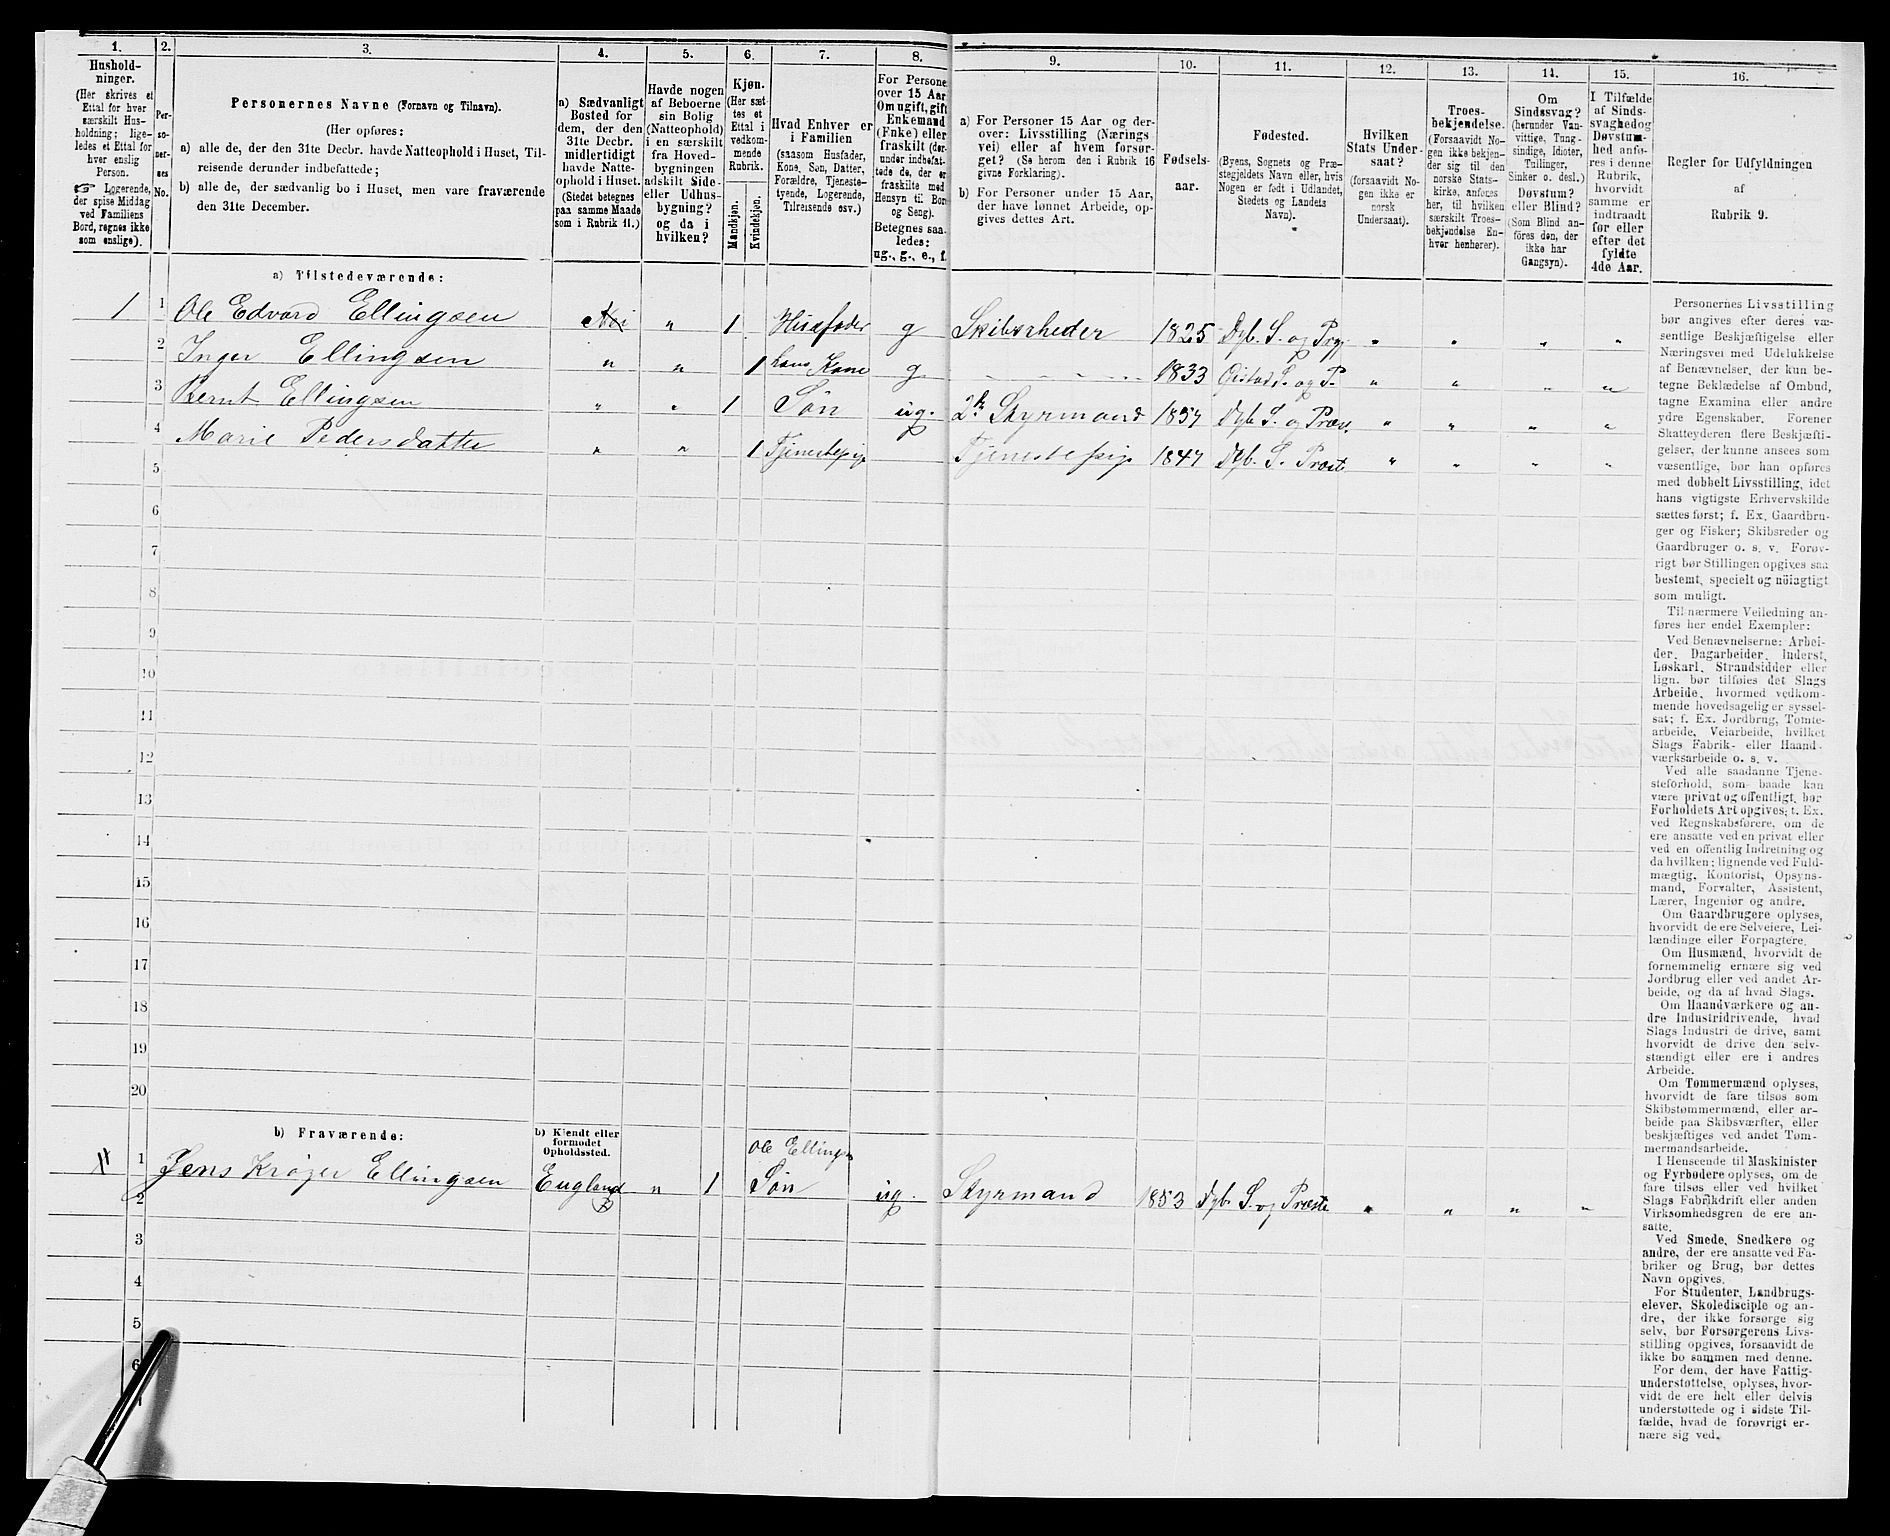 1. 2. 3. 4. 5. 6. 7. 8. 9. 10. 11. 12. 13. 14. 15. 16.
Hushold-
ninger.
(Her skrives et
Ettal for hver
særskilt Hus-
holdning; lige-
ledes et Ettal for
hver enslig
Person.
☞ Logerende,
der spise Middag
ved Familiens
Bord, regnes ikke
som enslige).
Per-
so-
ner-
nes
No.
Personernes Navne (Fornavn og Tilnavn).
(Her opføres:
a) alle de, der den 31te Decbr. havde Natteophold i Huset, Til-
reisende derunder indbefattede;
b) alle de, der sædvanlig bo i Huset, men vare fraværende
den 31te December.
a) Sædvanligt
Bosted for
dem, der den
31te Decbr.
midlertidigt
havde Natte-
ophold i Huset.
(Stedet betegnes
paa samme Maade
som i Rubrik 11.)
Havde nogen
af Beboerne
sin Bolig
(Natteophold)
i en særskilt
fra Hoved-
bygningen
adskilt Side-
eller Udhus-
bygning?
og da i
hvilken?
Kjøn.
(Her sæt-
tes et
Ettal i
vedkom-
mende
Rubrik.
Mandkjøn.
Kvindekjøn.
Hvad Enhver er
i Familien
(saasom Husfader,
Kone, Søn, Datter,
Forældre, Tjeneste-
tyende, Logerende,
Tilreisende osv.)
For Persone
over 15 Aar
Om ugift, gift
Enkemand
(Enke) eller
fraskilt (der-
under indbefat-
tede de, der er
fraskilte med
Hensyn til Bor
og Seng).
Betegnes saa-
ledes:
ug., g., e., f.
a) For Personer 15 Aar og der-
over: Livsstilling (Nærings
vei) eller af hvem forsør-
get? (Se herom den i Rubrik 16
givne Forklaring).
b) For Personer under 15 Aar,
der have lønnet Arbeide, op-
gives dettes Art.
Fødsels-
aar.
Fødested.
(Byens, Sognets og Præ-
stegjeldets Navn eller, hvis
Nogen er født i Udlandet,
Stedets og Landets
Navn).
Hvilken
Stats Under-
saat?
(forsaavidt No-
gen ikke er
norsk
Undersaat).
Troes-
bekjendelse.
(Forsaavidt No-
gen ikke bekjen-
der sig til den
norske Stats-
kirke, anføres
her, til hvilken
særskilt Troes-
bekjendelse En-
hver henhører).
Om
Sindssvag?
(herunder Van-
vittige, Tung-
sindige, Idioter,
Tullinger,
Sinker o. desl.)
Døvstum?
eller Blind?
(Som Blind an-
føres den, der
ikke har
Gangsyn).
I Tilfælde
af Sinds-
svaghed og
Døvstum-
hed anfø-
res i denne
Rubrik,
hvorvidt
samme er
indtraadt
før eller
efter det
fyldte
4de Aar.
Regler for Udfyldningen
af
Rubrik 9.
a) Tilstedeværende:
1 1 Ole Edvard Ellingsen " 1 Husfader g Skibsrheder 1825 Dyb. S. og Præ. " " " "
2 Inger Ellingsen " " 1 hans Kone g 1833 Øistad S. og P. " " " "
3 Bernt Ellingsen " " 1 Søn ug. 2den Styrmand 1857 Dyb. S. og Præst. " " " "
4 Marie Pedersdatter " " 1 Tjenestepige Tjenestepige 1847 Dyb. S. Præst. " " " "
5
6
7
8
9
10
11
12
13
14
15
16
17
18
19
20
b) Fraværende:
b) Kjendt eller
formodet
Opholdssted.
Ole Ellingsen
1 Jens Krøger Ellingsen England " 1 Søn ug. Styrmand 1853 Dyb. S. og Præste " " " "
2
3
4
5
6
Personernes Livsstilling
bør angives efter deres væ-
sentlige Beskjæftigelse eller
Næringsvei med Udelukkelse
af Benævnelser, der kun be-
tegne Beklædelse af Ombud,
tagne Examina eller andre
ydre Egenskaber. Forener
Skatteyderen flere Beskjæfti-
gelser, der kunne ansees som
væsentlige, bør han opføres
med dobbelt Livsstilling, idet
hans vigtigste Erhvervskilde
sættes først; f. Ex. Gaardbru-
ger og Fisker; Skibsreder og
Gaardbruger o. s. v. Forøv-
rigt bør Stillingen opgives saa
bestemt, specielt og nöiagtigt
som muligt.
Til nærmere Veiledning an-
føres her endel Exempler:
Ved Benævnelserne: Arbei-
der, Dagarbeider, Inderst,
Løskarl, Strandsidder eller
lign. bør tilføies det Slags
Arbeide, hvormed vedkom-
mende hovedsagelig er syssel-
sat; f. Ex. Jordbrug, Tomte-
arbeide, Veiarbeide, hvilket
Slags Fabrik- eller Haand-
værksarbeide o. s. v.
Ved alle saadanne Tjene-
steforhold, som baade kan
være privat og offentligt, bør
Forholdets Art opgives; f. Ex.
ved Regnskabsførere, om de
ere ansatte ved en privat eller
ved en offentlig Indretning og
da hvilken; lignende ved Fuld-
mægtig, Kontorist, Opsyns-
mand, Forvalter, Assistent,
Lærer, Ingeniør og andre.
Om Gaardbrugere oplyses,
hvorvidt de ere Selveiere, Lei-
lændinge eller Forpagtere.
Om Husmænd, hvorvidt de
fornemmelig ernære sig ved
Jordbrug eller ved andet Ar-
beide, og da af hvad Slags.
Om Haandværkere og an-
dre Industridrivende, hvad
Slags Industri de drive, samt
hvorvidt de drive den selv-
stændigt eller ere i andres
Arbeide.
Om Tømmermænd oplyses,
hvorvidt de fare tilsøs som
Skibstømmermænd, eller ar-
beide paa Skibsværfter, eller
beskjæftiges ved andet Tøm-
mermandsarbeide.
I Henseende til Maskinister
og Fyrbødere oplyses, om de
fare tilsøs eller ved hvilket
Slags Fabrikdrift eller anden
Virksomhedsgren de ere an-
satte.
Ved Smede, Snedkere og
andre, der ere ansatte ved Fa-
briker og Brug, bør dettes
Navn opgives.
For Studenter, Landbrugs-
elever, Skoledisciple og an-
dre, der ikke forsørge sig
selv, bør Forsørgerens Livs-
stilling opgives, forsaavidt de
ikke bo sammen med denne.
For dem, der have Fattig-
understøttelse, oplyses, hvor-
vidt de ere helt eller delvis
understøttede og i sidste Til-
fælde, hvad de forøvrigt er-
nære sig ved.